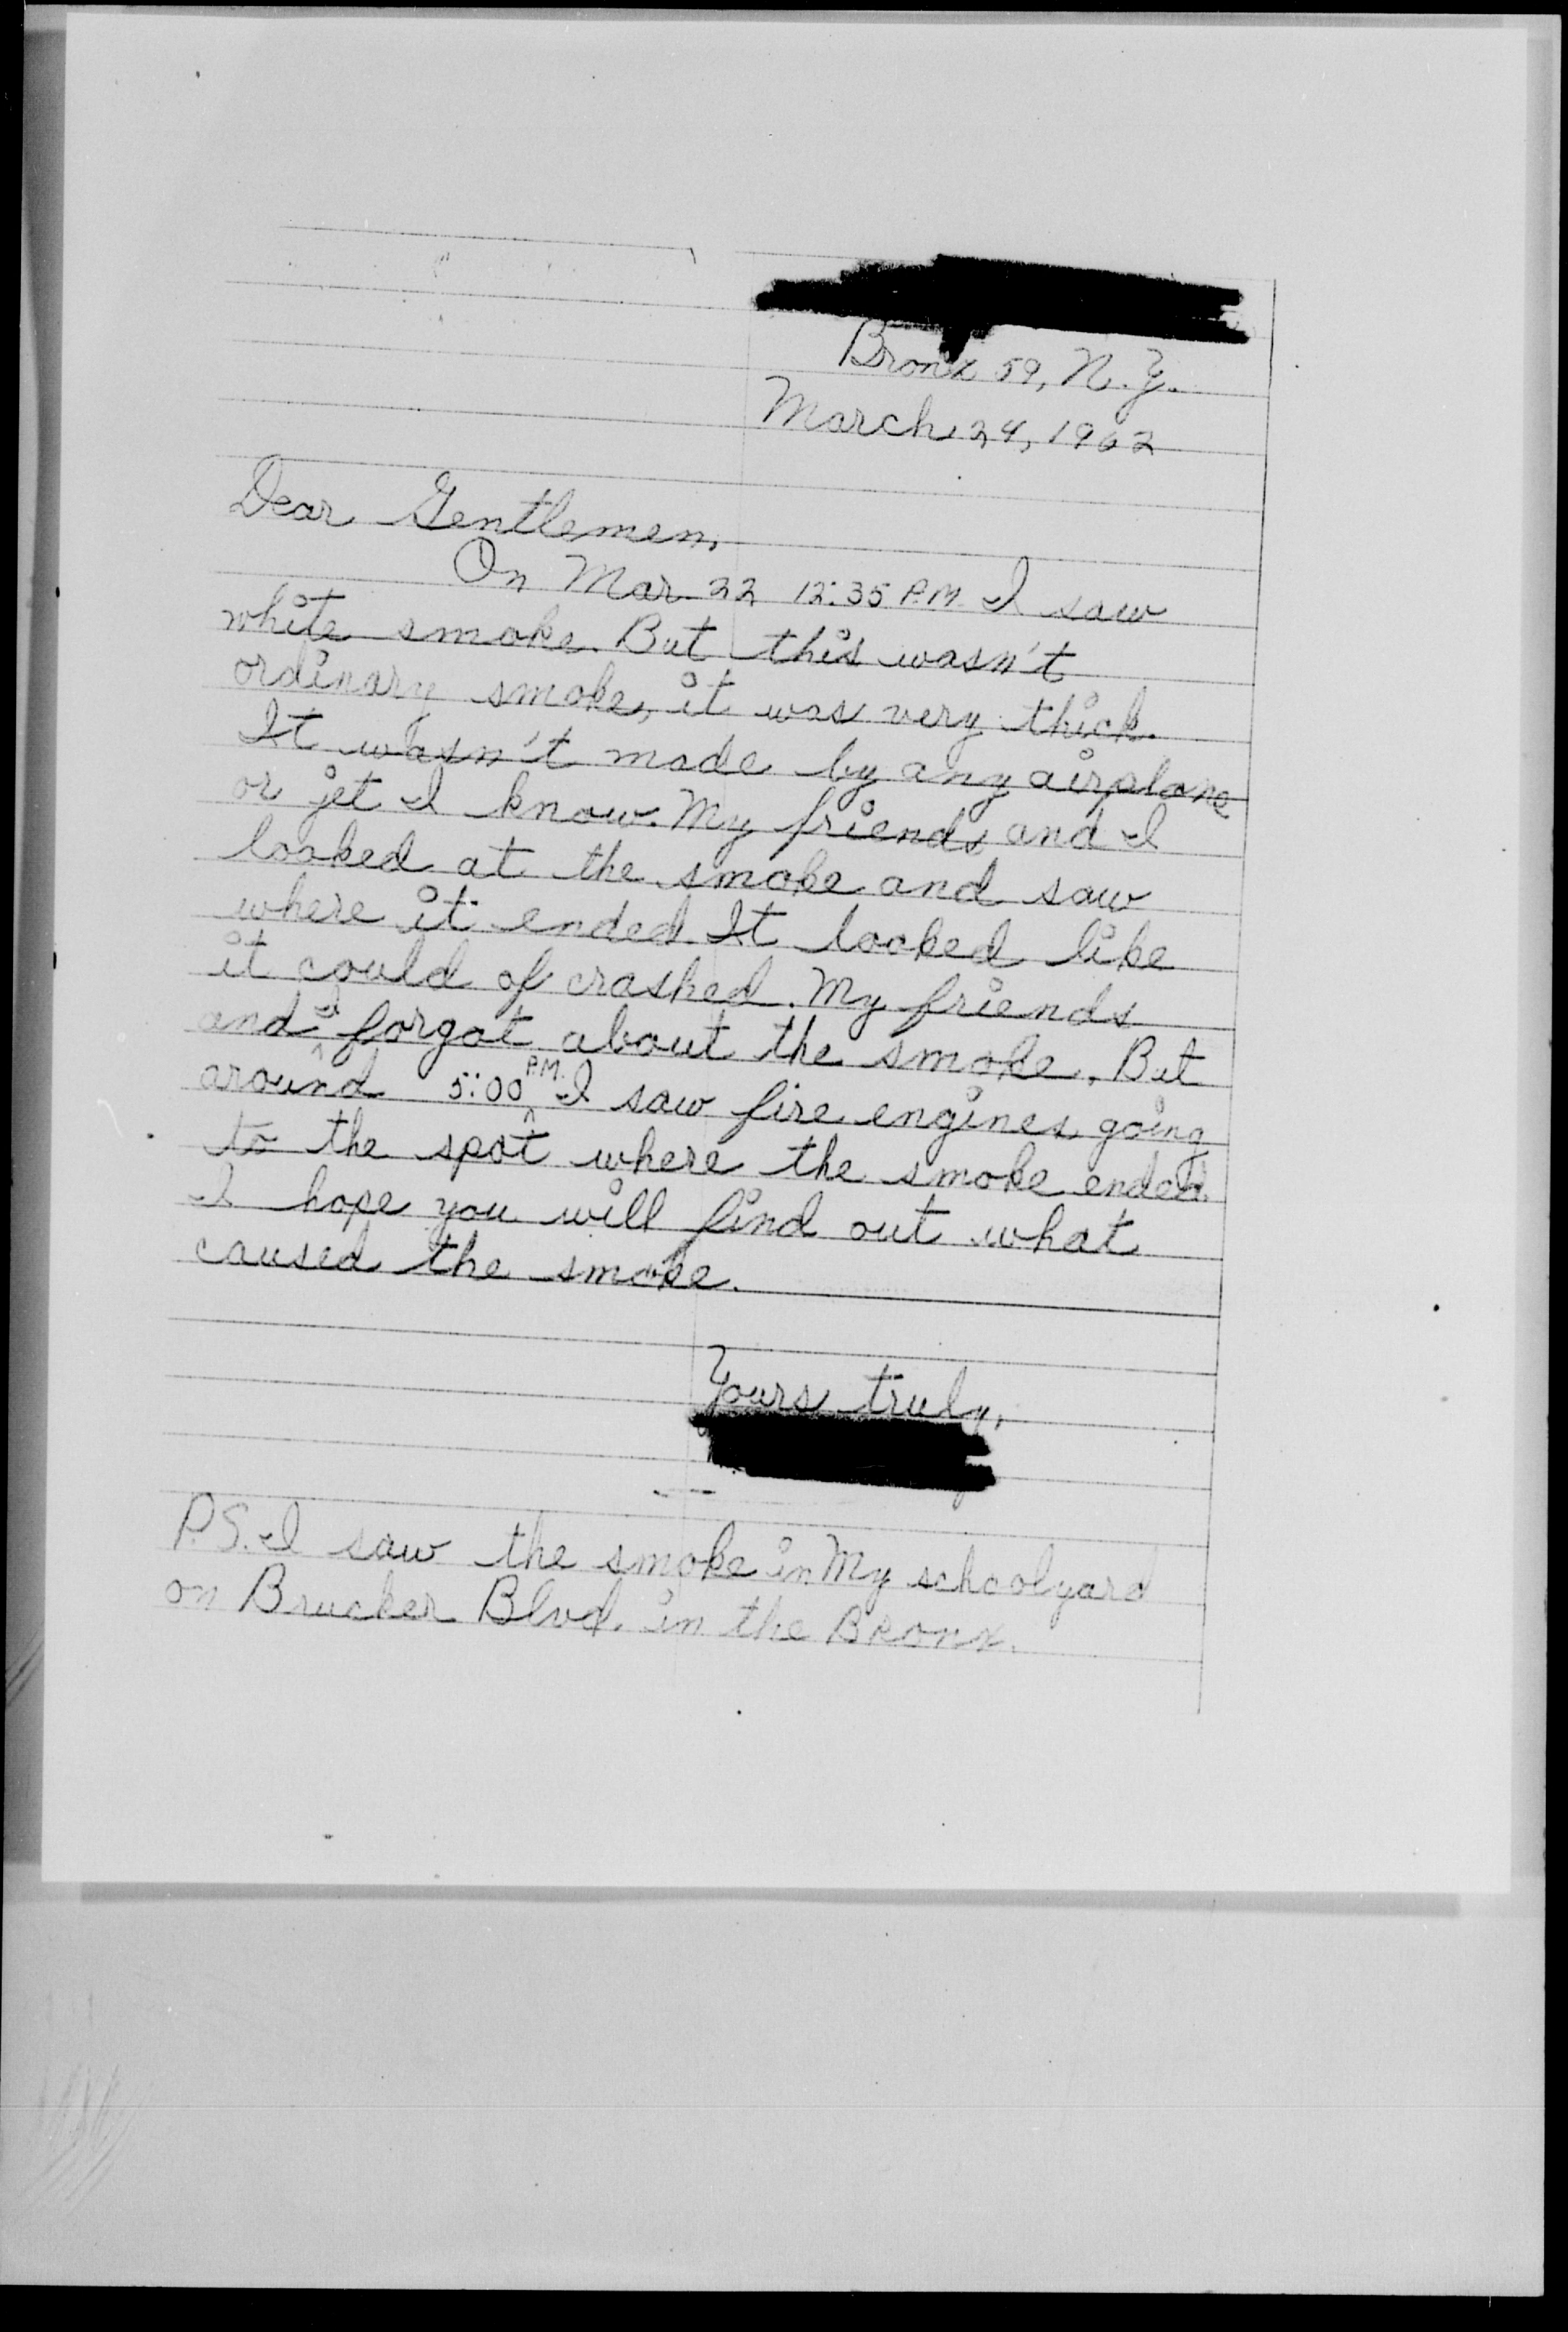 Bronx 59, N.Y.
March 24, 1962
Dear Gentlemen,
On Mar. 22 12:35 P.M. I saw
white smoke. But this wasn't
ordinary smoke, it was very thick.
It wasn't made by any airplane
or jet I know. My friends and I
looked at the smoke and saw
where it ended. It looked like
it could of crashed. My friends
and I forgot about the smoke. But
around 5:00 P.M. I saw fire engines going
to the spot where the smoke ended.
I hope you will find out what
caused the smoke.
Yours truly,
P.S. I saw the smoke in My schoolyard
on Brucker Blvd. in the Bronx.